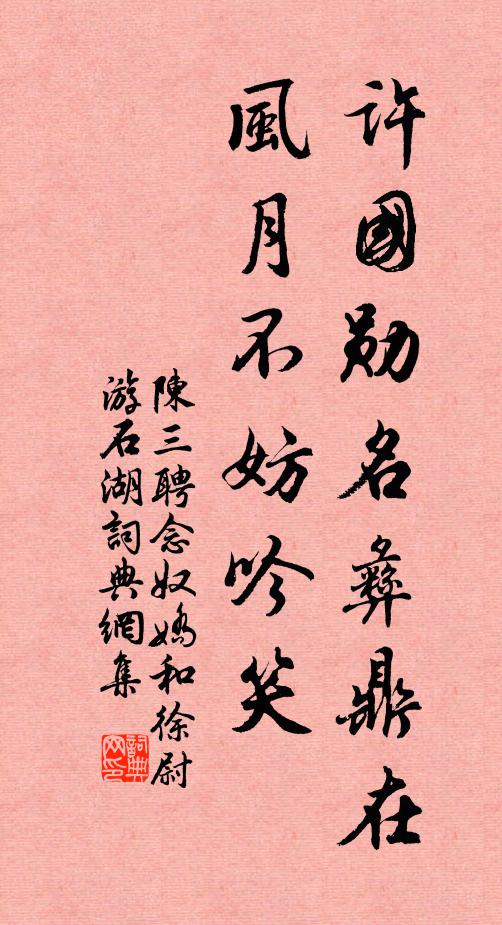 許國勛名彝鼎在
風月不妨吟笑
陳三聘念奴嬌和徐尉
游石湖詞典網集
詞典网印